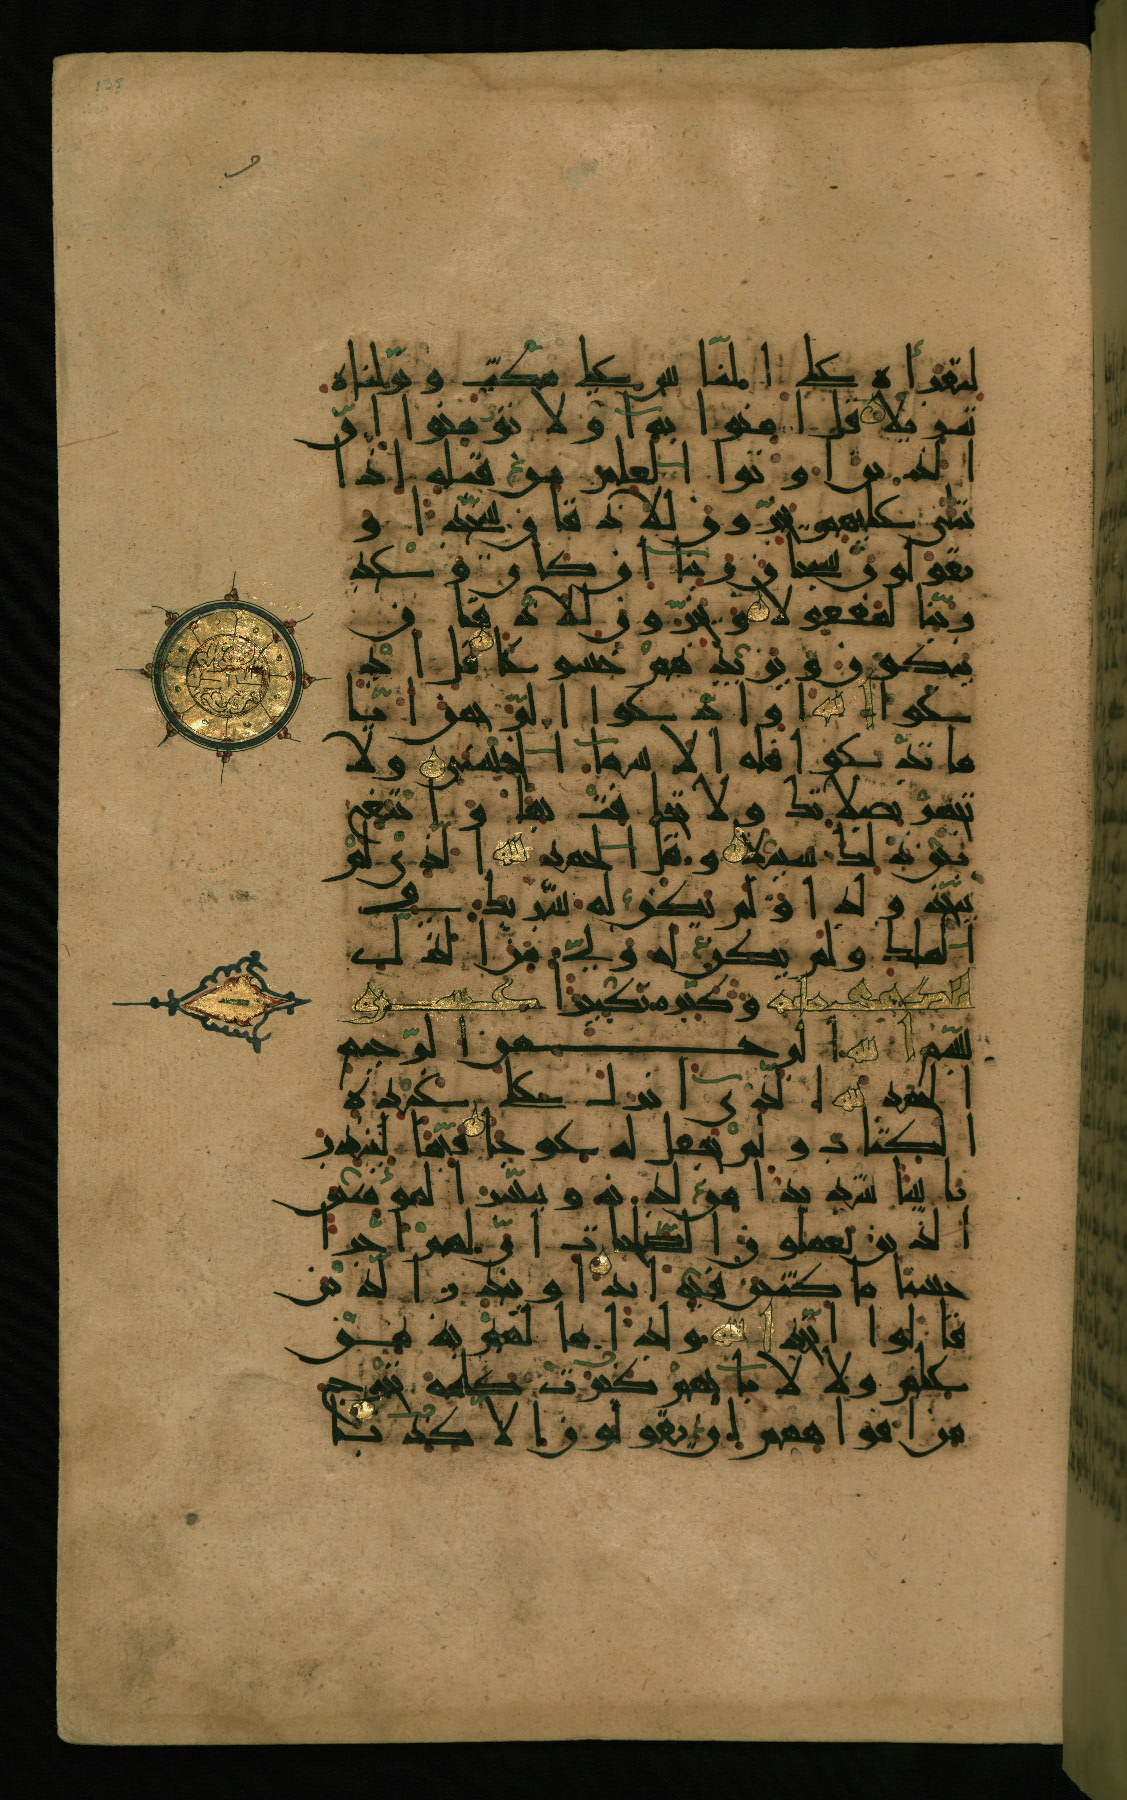 لتقرأه على الناس على مكث ونزلناه
تنزيلا قل امنوا به او لا تؤمنوا ان
الذين اوتوا العلم من قبله اذا
يتلى عليهم يخرون للاذقان سجدا و
يقولون سبحان ربنا ان كان وعد
ربنا لمفعولا ويخرون للاذقان
يبكون ويزيدهم خشوعا قل اد
عوا الله او ادعوا الرحمن ايا
ما تدعوا فله الاسما الحسنى ولا
تجهر بصلاتك ولا تخافت بها وابتغ
بين ذلك سبيلا وقل الحمد لله الذي لم
يتخذ ولدا ولم يكن له شريك في
الملك ولم يكن له ولي من الذل
الكهف مايه وكبره تكبيرا عشر
بسم الله الرحمن الرحيم
الحمد لله الذي انزل على عبده
الكتاب ولم يجعل له عوجا قيما لينذر
باسا شديدا من لدنه ويبشر المؤمنين
الذين يعملون الصالحات ان لهم اجرا
حسنا ماكثين فيه ابدا وينذر الذين
قالوا اتخذ الله ولدا ما لهم به من
علم ولا لابائهم كبرت كلمة تخرج
من افواههم ان يقولون الا كذبا